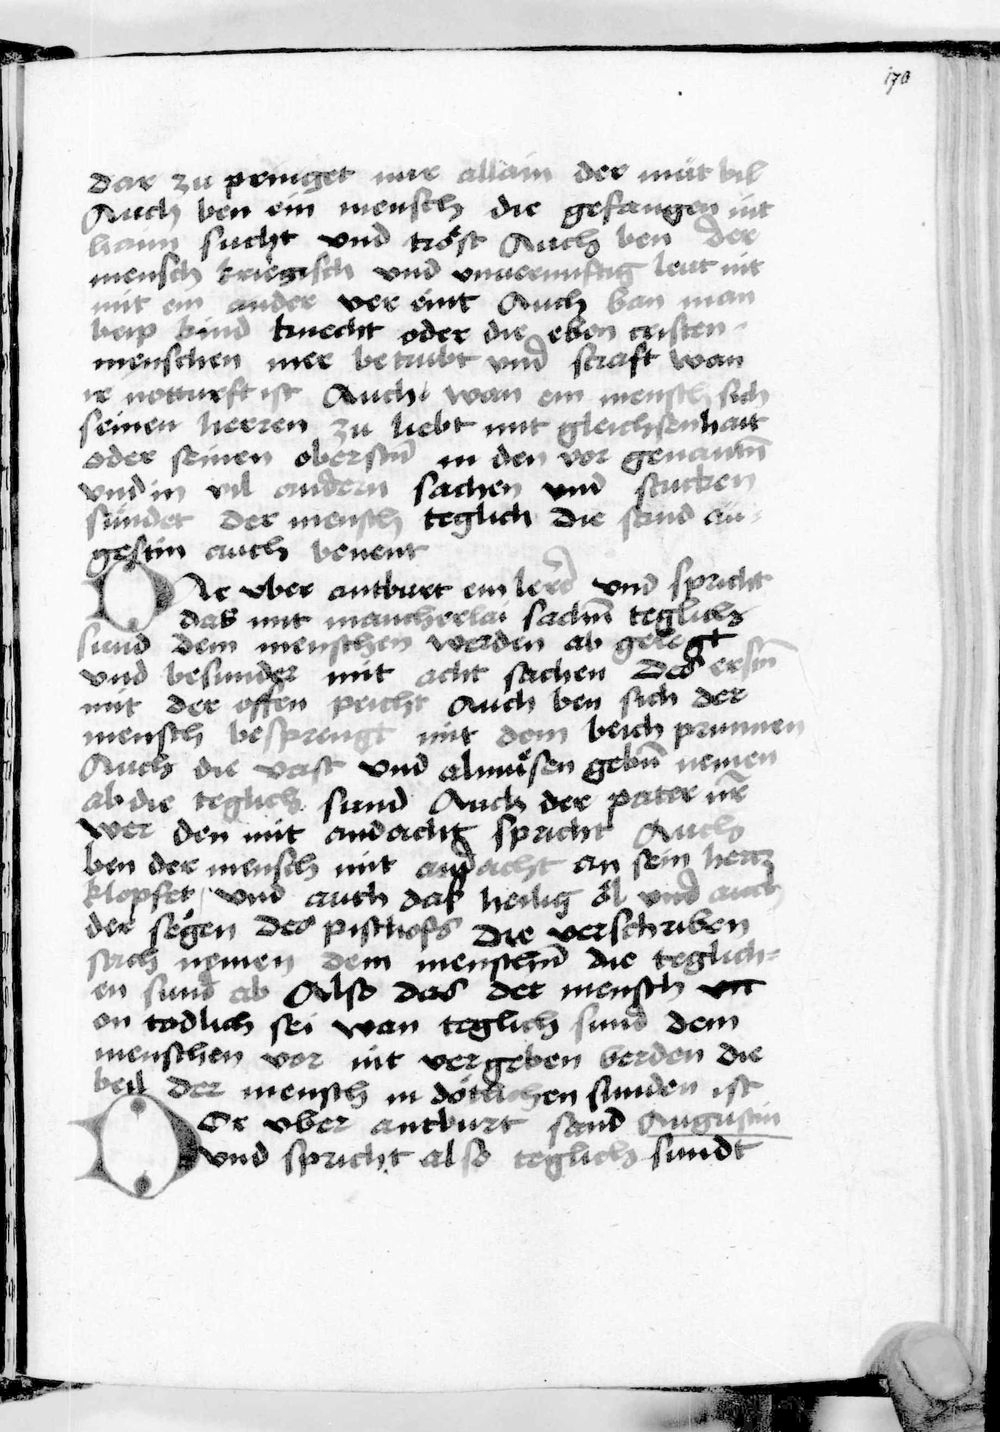 170
dar zu pringet mir allain der müt bil
Auch ben ein mensch die gefangen nit
haim sucht vnd tröst Auch ben der
mensch kriegisch vnd vnuernuftig leut nit
mit ein ander ver eint Auch ban man
beip kind knecht oder die eben cristen
menschen mer betrubt vnd straft wan
ir notturft ist Auch wan ein mensch sich
seinen herren zu liebt mit gleichsenhait
oder seinen oberstñ in den vor genantñ
vnd in vil andern sachen vnd stucken
sündet der mensch teglich die sand au-
gestin auch benent
DAr vber antburt ein lerer vnd spricht
das mit mancherlai sachñ teglich
sund dem menschen werden ab gelegt
vnd besunder mit acht sachen Des erstñ
mit der offen peicht Auch ben sich der
mensch besprengt mit dem beich prunnen
Auch die vast vnd almüsen gebñ nemen
ab die teglich sund Auch der pater nr̃
wer den mit andacht spricht Auch
ben der mensch mit andacht an sein hertz
klopfet vnd auch das heilig öl vnd auch
der segen des pischofs die verschriben
sach nemen dem menschñ die teglich-
en sund ab Also das der mensch
on todlich sei wan teglich sund dem
menschen vor nit vergeben berden die
beil der mensch in dötlichen sunden ist
DAr vber antburt sand Augustin
vnd spricht also teglich sundt